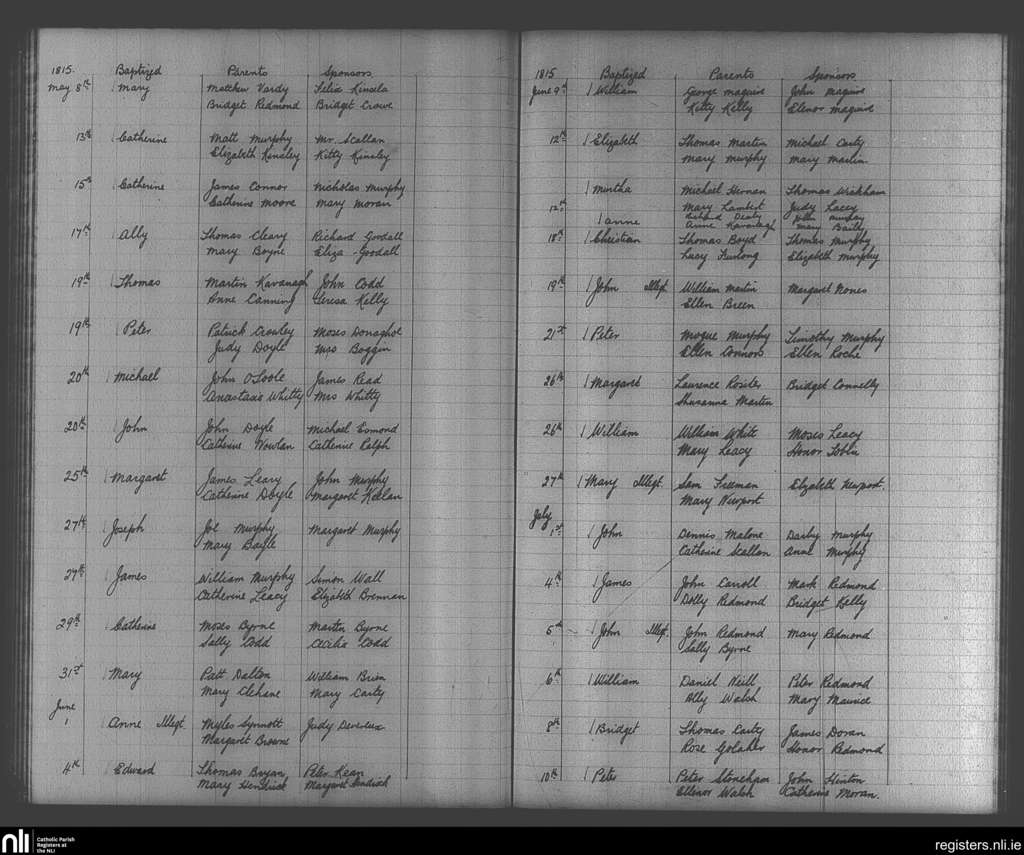 1815. Baptized Parents Sponsors
May 8th Mary Matthew Vardy Felix Kinsela
Bridget Redmond Bridget Crowe
13th Catherine Matt Murphy Mr. Scallan
Elizabeth Kinsley Kitty Kinsley
15th Catherine James Connor Nicholas Murphy
Catherine Moore Mary Moran
17th Ally Thomas Cleary Richard Goodall
Mary Boyne Eliza Goodall
19th Thomas Martin Kavanagh John Codd
Anne Canning Teresa Kelly
19th Peter Patrick Crowley Moses Donaghoe
Judy Doyle Mrs Boggin
20th Michael John O'Toole James Read
Anastasia Whitty Mrs Whitty
20th John John Doyle Michael Esmond
Catherine Nowlan Catherine Ralph
25th Margaret James Leary John Murphy
Catherine Doyle Margaret Keelan
27th Joseph Joe Murphy Margaret Murphy
Mary Bayle
27th James William Murphy Simon Wall
Catherine Leacy Elizabeth Brennan
29th Catherine Moses Byrne Martin Byrne
Sally Codd Cecilia Codd
31st Mary Patt Dalton William Brien
Mary Clehane Mary Carty
June
1 Anne Illegt. Myles Synnott Judy Devereux
Margaret Browne
4th Edward Thomas Bryan Peter Kean
Mary Hendrick Margaret Hendrick
1815 Baptized Parents Sponsors
June 9th William George Maguire John Maguire
Kitty Kelly Elenor Maguire
12th Elizabeth Thomas Martin Michael Carty
Mary Murphy Mary Martin
Mertha Michael Hernan Thomas Wickham
12th Mary Lambert Judy Lacey
Anne Richard Deuly John Murphy
Anne Kavanagh Mary Baily
18th Christian Thomas Boyd Thomas Murphy
Lucy Furlong Elizabeth Murphy
19th John Illegt. William Martin Margaret Nones
Ellen Breen
21st Peter Mogue Murphy Timothy Murphy
Ellen Connors Ellen Roche
26th Margaret Laurence Rositer Bridget Connelly
Shusanna Martin
26th William William White Moses Leacy
Mary Leacy Honor Tobin
27th Mary Illegt. Sam Freeman Elizabeth Newport.
Mary Newport
July
1st John Dennis Malone Darby Murphy
Catherine Scallan Anne Murphy
4th James John Carroll Mark Redmond
Dolly Redmond Bridget Kelly
5th John Illegt. John Redmond Mary Redmond
Sally Byrne
6th William Daniel Neill Peter Redmond
Ally Walsh Mary Maurice
8th Bridget Thomas Carty James Doran
Rose Golaher Honor Redmond
10th Peter Peter Stonehpor John Hinton
Ellenor Walsh Catherine Moran.
nli Catholic Parish
Registers at
the NLI
registers.nli.ie